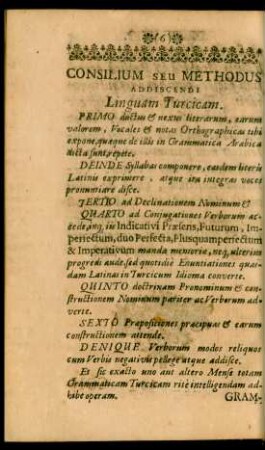 (6)
CONSILIUM SEU METHODUS
ADDISCENDI
Linguam Turcicam.
PRIMO ductum & nexus literarum, earum
valorem, Vocales & notas Orthographicas tibi
expone, quæque de illis in Grammatica Arabica
dicta sunt, repete.
DEINDE Syllabas componere, easdem literis
Latinis exprimere, atque ita integras voces
pronunciare disce.
TERTIO ad Declinationem Nominum &
QUARTO ad Conjugationes Verborum ac-
cede, eaq; in Indicativi Præsens, Futurum, Im-
perfectum, duo Perfecta, Plusquamperfectum
& Imperativum manda memoriæ, neq; ulterius
progredi aude, sed quotidie Enuntiationes quas-
dam Latinas in Turcicum Idioma converte.
QUINTO doctrinam Pronominum & con-
structionem Nominum pariter ac Verborum ad-
verte.
SEXTO Præpositiones præcipuas & earum
constructionem attende.
DENIQUE Verborum modos reliquos
cum Verbis negativis pellere atque addisce.
Et sic exacto uno aut altero Mense totam
Grammaticam Turcicam ritè intelligendam ad-
hibe operam.
GRAM-